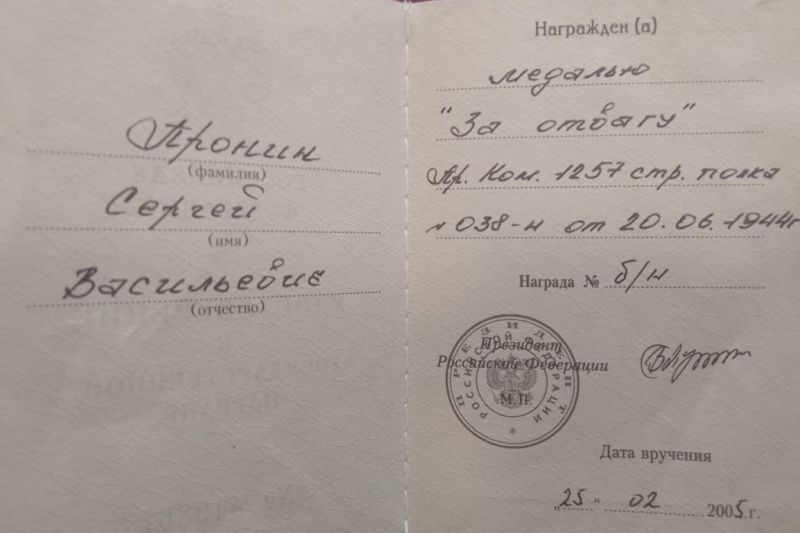 Пронин
(фамилия)
Сергей
(имя)
Васильевич
(отчество)
Награжден (а)
медалью
"За отвагу"
Пр. Ком. 1257 стр. полка
№ 038-н от 20.06.1944г
Награда № б/н
Президент
Российской Федерации
ПРЕЗИДЕНТ
РОССИЙСКОЙ ФЕДЕРАЦИИ
М.П.
Дата вручения
„25“ 02 2005 г.